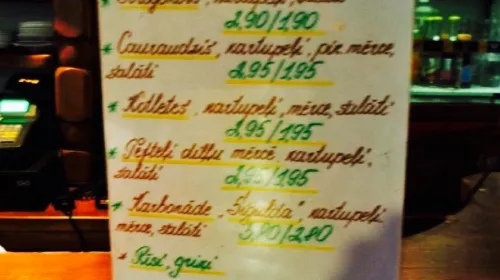 2,90/1,90
* Cauraudzis, kartupeļi, pip. mērce,
salāti 2,95/1,95
* Kotletes, kartupeļi, mērce, salāti
2,95/1,95
* Tefteļi diļļu mērcē, kartupeļi,
salāti 2,95/1,95
* Karbonāde "Sigulda", kartupeļi
mērce, salāti 3,80/2,80
* Rīsi, griķi